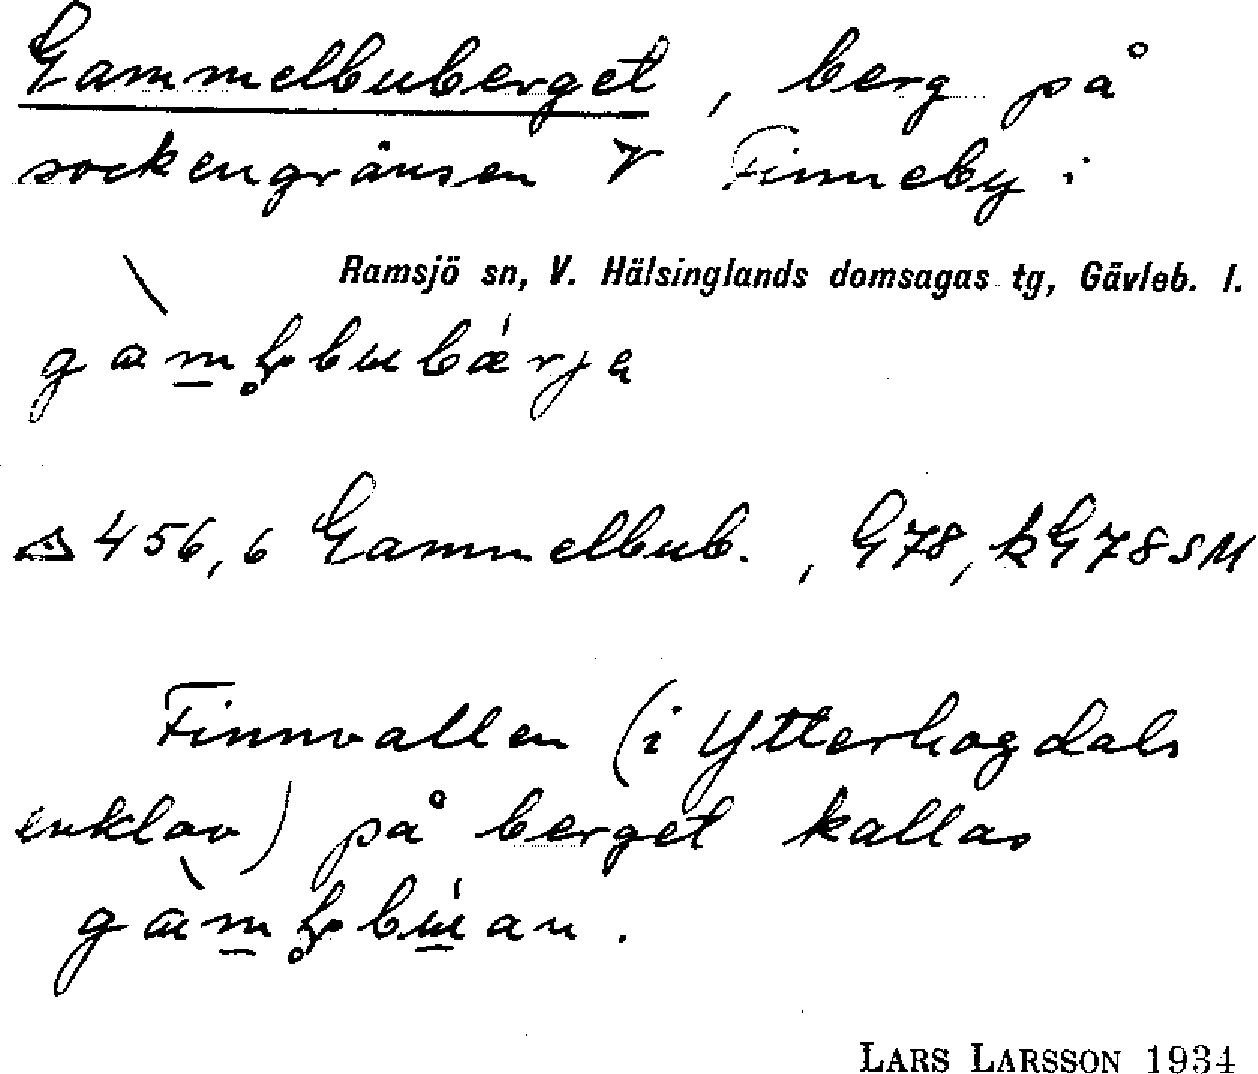 Gammelbuberget, berg på
sockengränsen V Finneby i
Ramsjö sn, V. Hälsinglands domsagas tg, Gävleb. l.
△ 456,6 Gammelbub., G78, kG78SM
Finnvallen (i Ytterhogdals
enklav) på berget kallas
LARS LARSSON 1934